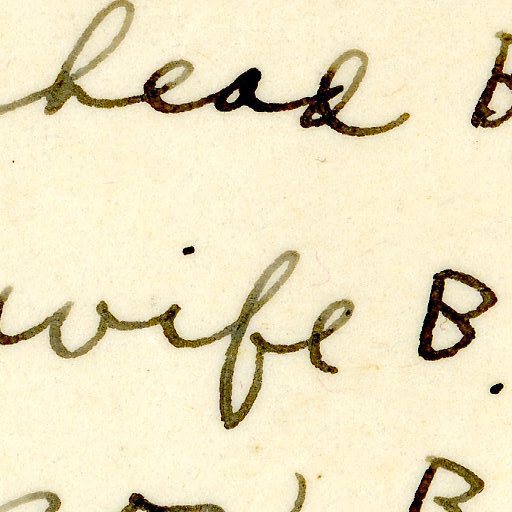 head B
wife B
B